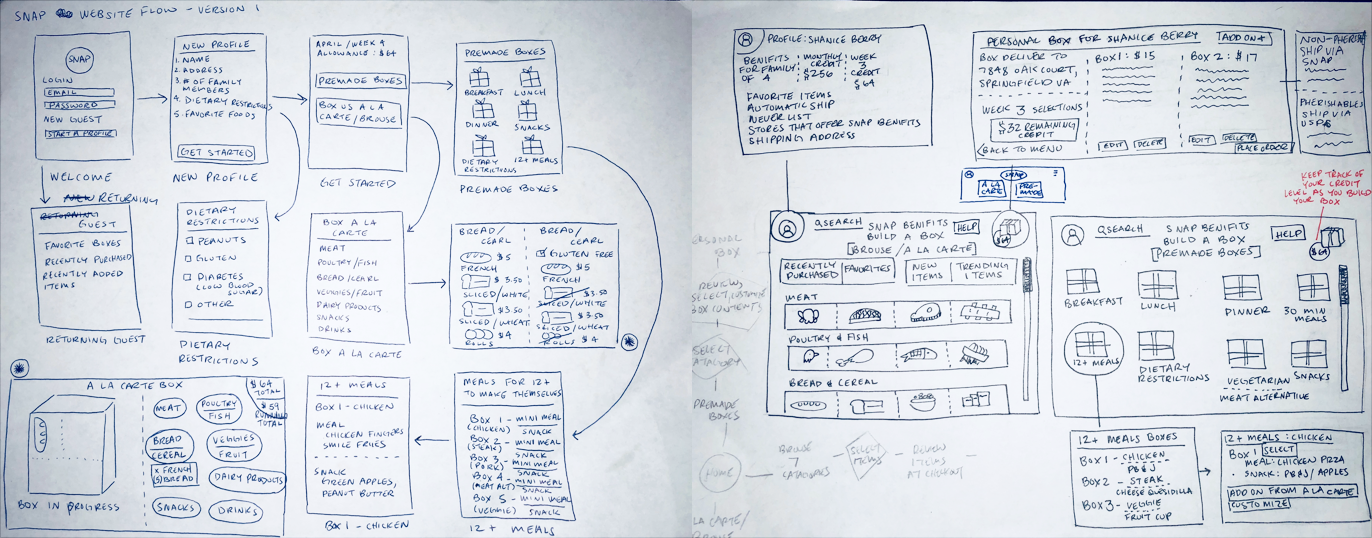 SNAP WEBSITE FLOW - VERSION 1
SNAP
LOGIN
EMAIL
PASSWORD
NEW GUEST
START A PROFILE
WELCOME
NEW PROFILE
1. NAME
2. ADDRESS
3. # OF FAMILY
MEMBERS
4. DIETARY RESTRICTIONS
5. FAVORITE FOODS
GET STARTED
NEW PROFILE
APRIL/WEEK 4
ALLOWANCE: $64
PREMADE BOXES
BOX US A LA
CARTE/BROWSE
GET STARTED
PREMADE BOXES
BREAKFAST
LUNCH
DINNER
SNACKS
DIETARY
RESTRICTIONS
12+ MEALS
PREMADE BOXES
NEW RETURNING
RETURNING
GUEST
FAVORITE BOXES
RECENTLY PURCHASED
RECENTLY ADDED
ITEMS
RETURNING GUEST
DIETARY
RESTRICTIONS
PEANUTS
GLUTEN
DIABETES
(LOW BLOOD
SUGAR)
OTHER
DIETARY
RESTRICTIONS
BOX A LA
CARTE
MEAT
POULTRY/FISH
BREAD/CEARL
VEGGIES/FRUIT
DAIRY PRODUCTS
SNACKS
DRINKS
BOX A LA CARTE
BREAD/
CEARL
$5
FRENCH
$3.50
SLICED/WHITE
$3.50
SLICED/WHEAT
$4
ROLLS
BREAD/
CEARL
GLUTEN FREE
$5
FRENCH
$3.50
SLICED/WHITE
$3.50
SLICED/WHEAT
ROLLS $4
A LA CARTE BOX
$64
TOTAL
$59
RUNNING
TOTAL
MEAT
POULTRY
FISH
BREAD
CEREAL
VEGGIES
FRUIT
X FRENCH
($)BREAD
DAIRY PRODUCTS
SNACKS
DRINKS
BOX IN PROGRESS
12+ MEALS
BOX 1 - CHICKEN
MEAL
CHICKEN FINGERS
SMILE FRIES
SNACK
GREEN APPLES,
PEANUT BUTTER
BOX 1 - CHICKEN
MEALS FOR 12+
TO MAKE THEMSELVES
BOX 1 - MINI MEAL
(CHICKEN) SNACK
BOX 2 - MINI MEAL
(STEAK) SNACK
BOX 3 - MINI MEAL
(PORK) SNACK
BOX 4 - MINI MEAL
(MEAT ALT) SNACK
BOX 5 - MINI MEAL
(VEGGIE) SNACK
12+ MEALS
PROFILE: SHANICE BERRY
BENIFITS
FOR FAMILY
OF 4
MONTHLY
CREDIT:
$256
WEEK
3
CREDIT
$64
FAVORITE ITEMS
AUTOMATIC SHIP
NEVER LIST
STORES THAT OFFER SNAP BENIFITS
SHIPPING ADDRESS
PERSONAL BOX FOR SHANICE BERRY
ADD ON+
BOX DELIVER TO
7848 OAK COURT,
SPRINGFIELD VA
WEEK 3 SELECTIONS
$32 REMAINING
CREDIT
BACK TO MENU
BOX 1: $15
EDIT
DELETE
BOX 2: $17
EDIT
DELETE
PLACE ORDER
NON-PHERISH
SHIP VIA
SNAP
PHERISHABLES
SHIP VIA
USPS
SNAP
A LA
CARTE
PRE-
MADE
KEEP TRACK OF
YOUR CREDIT
LEVEL AS YOU BUILD
YOUR BOX
SEARCH
SNAP BENIFITS
BUILD A BOX
BROWSE/A LA CARTE
HELP
$64
RECENTLY
PURCHASED
FAVORITES
NEW
ITEMS
TRENDING
ITEMS
MEAT
POULTRY & FISH
BREAD & CEREAL
SEARCH
SNAP BENIFITS
BUILD A BOX
PREMADE BOXES
HELP
$64
BREAKFAST
LUNCH
DINNER
30 MIN
MEALS
12+ MEALS
DIETARY
RESTRICTIONS
VEGETARIAN
MEAT ALTERNATIVE
SNACKS
12+ MEALS BOXES
BOX 1 - CHICKEN
PB&J
BOX 2 - STEAK
CHEESE QUESIDILLA
BOX 3 - VEGGIE
FRUIT CUP
12+ MEALS: CHICKEN
BOX 1 SELECT
MEAL: CHICKEN PZZA
• SNACK: PB&J/APPLES
ADD ON FROM A LA CARTE
CUSTOMIZE
BOX
REVIEW
SELECT/CUSTOMIZE
BOX CONTENTS
SELECT
CATAGORY
PREMADE
BOXES
HOME
BROWSE
7
CATAGORIES
SELECT
ITEMS
REVIEW
ITEMS
AT CHECKOUT
LA CARTE/